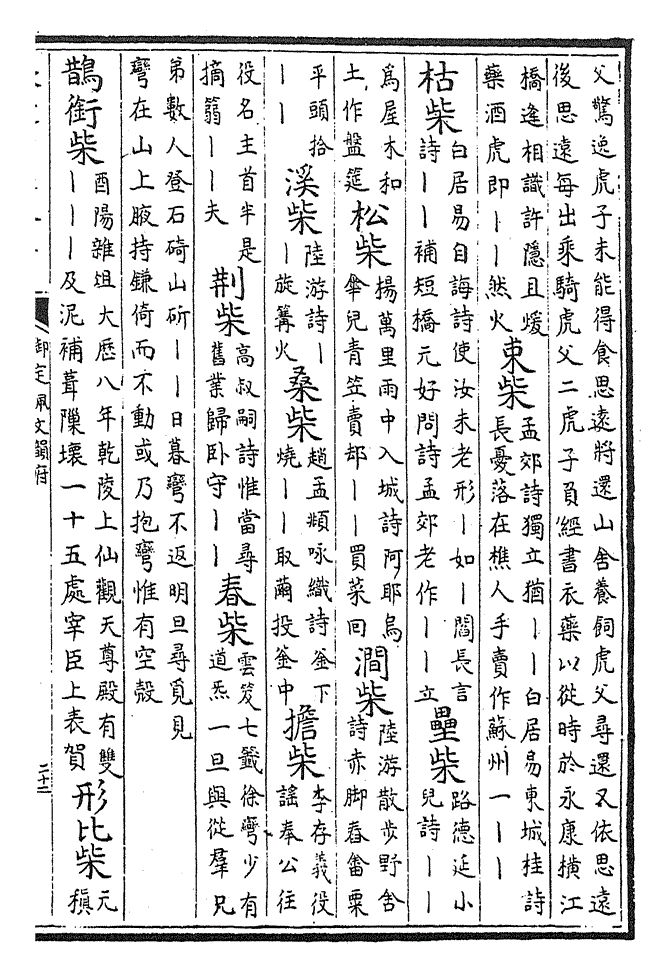 父驚逸虎子未能得食思遠將還山舍養飼虎父尋還又依思遠
後思遠每出乘騎虎父二虎子負經書衣藥以從時於永康横江
橋逢相識許隱且煖
藥酒虎即丨丨然火
束柴
孟郊詩獨立猶丨丨白居易東城桂詩
長憂落在樵人手賣作蘇州一丨丨
枯柴
白居易自誨詩使汝未老形丨如丨閻長言
詩丨丨補短橋元好問詩孟郊老作丨丨立
壘柴
路德延小
兒詩丨丨
爲屋木和
土作盤筵
松柴
楊萬里雨中入城詩阿耶烏
傘兒青笠賣却丨丨買菜回
澗柴
陸游散步野舍
詩赤脚舂畬粟
平頭拾
丨丨
溪柴
陸游詩丨
丨旋篝火
桑柴
趙孟頫咏織詩釜下
燒丨丨取繭投釜中
擔柴
李存義役
謠奉公往
役名主首半是
摘蒻丨丨夫
荆柴
高叔嗣詩惟當尋
舊業歸卧守丨丨
春柴
雲笈七籤徐彎少有
道炁一旦與從羣兄
弟數人登石碕山斫丨丨日暮彎不返明旦尋覓見
彎在山上腋持鎌倚而不動或乃抱彎惟有空殼
鵲銜柴
酉陽雜俎大歷八年乾陵上仙觀天尊殿有雙
丨丨丨及泥補葺隟壞一十五處宰臣上表賀
形比柴
元
稹
御定佩文韻府
二十二